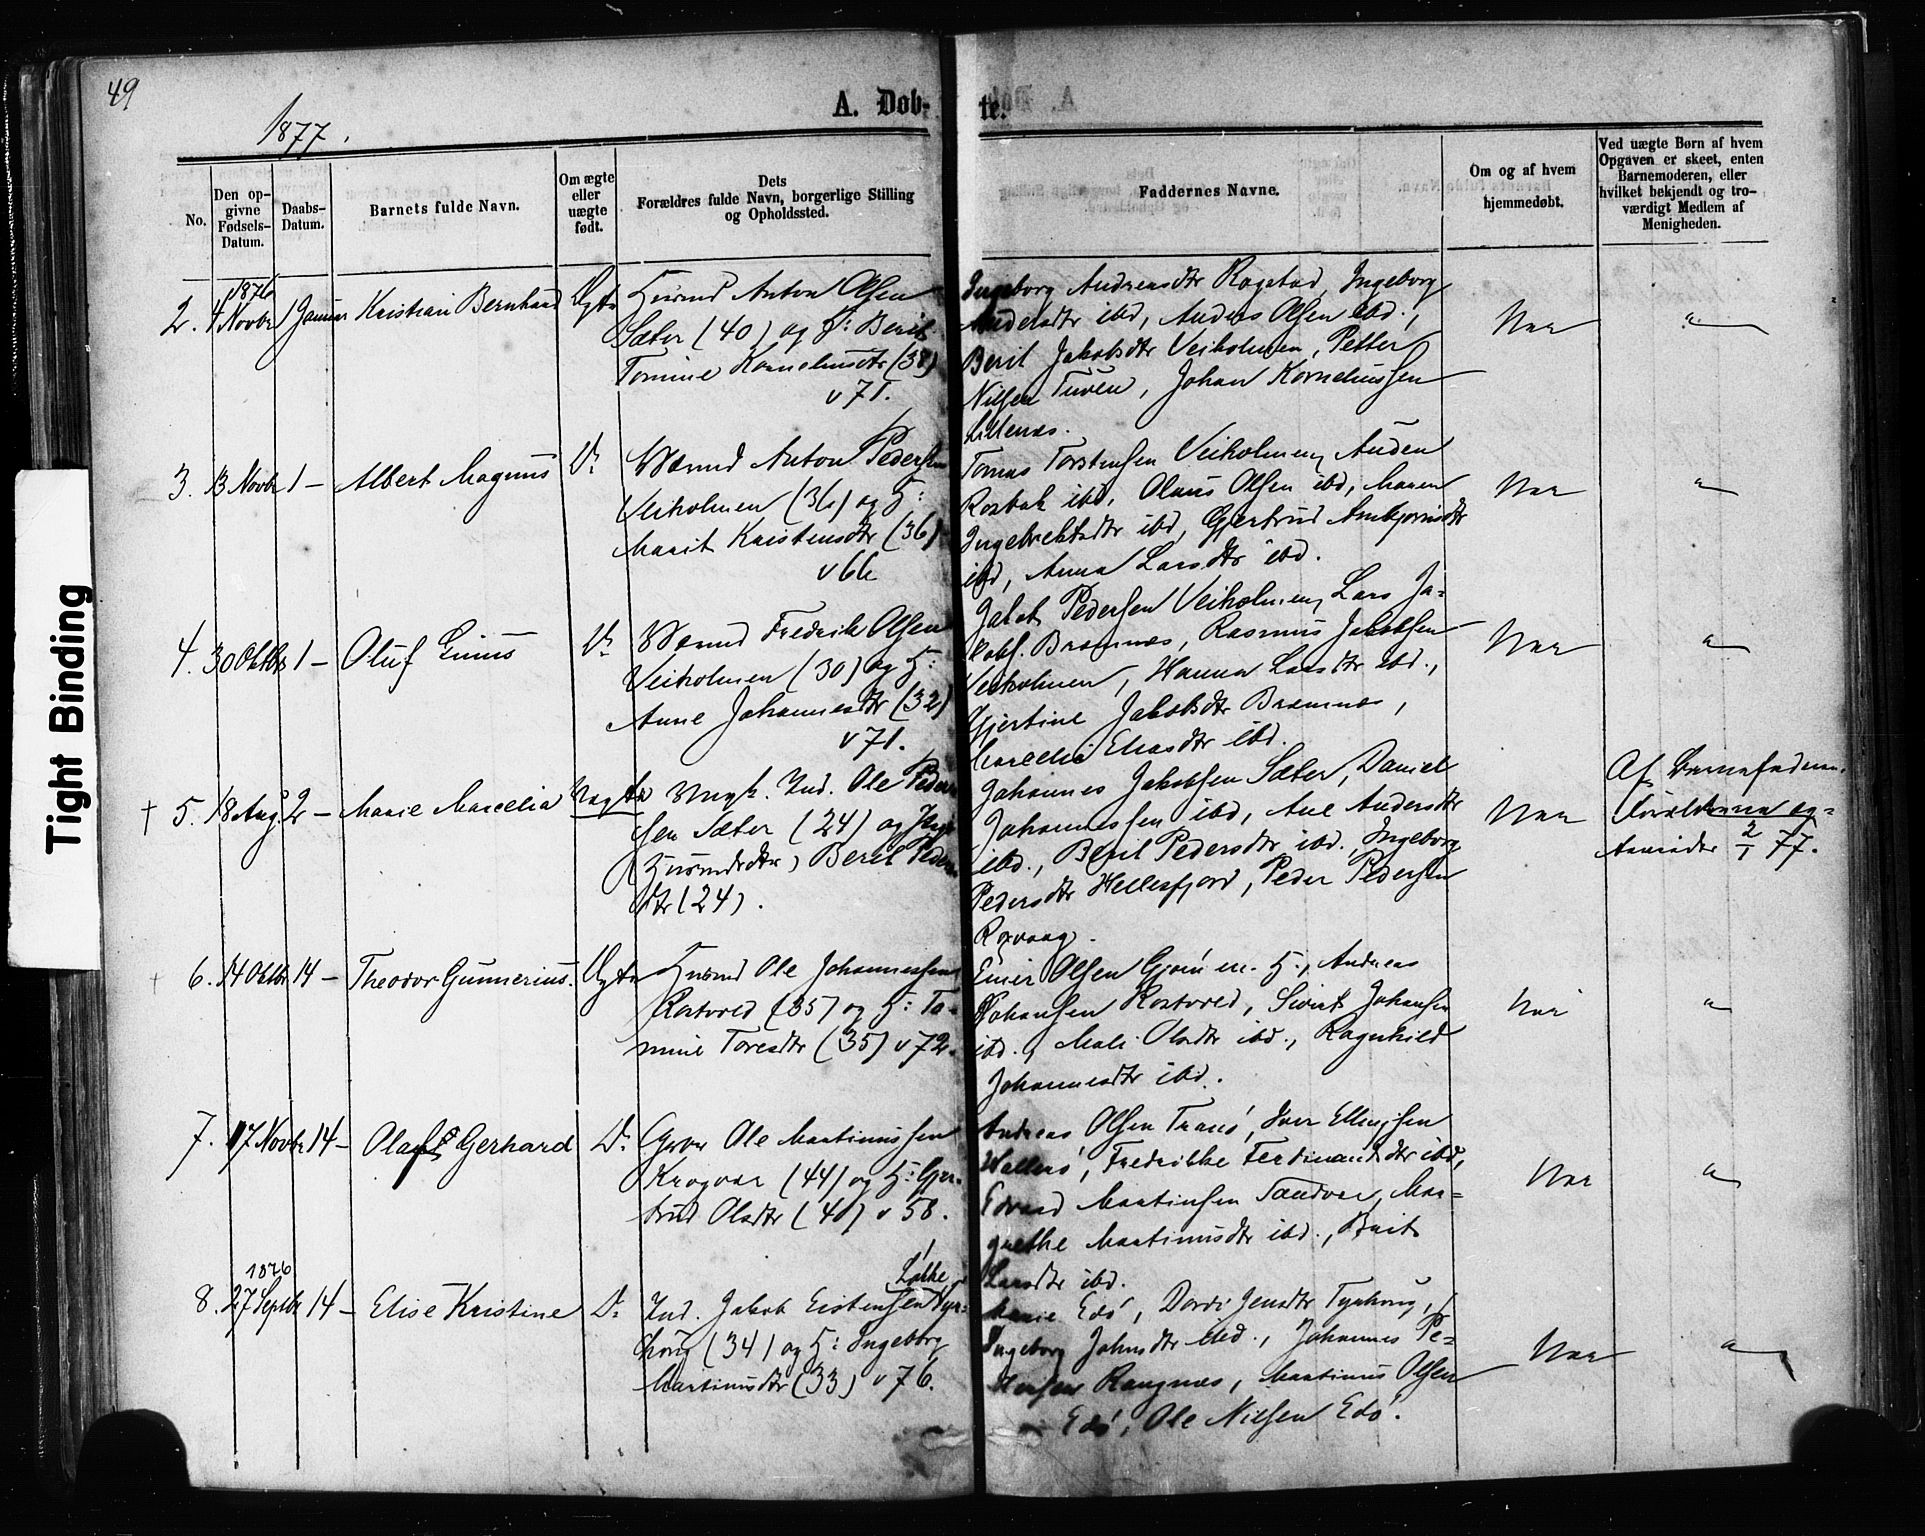 49
1877.
A. Døb-
te.
No.
Den op-
givne
Fødsels-
Datum.
Daabs-
Datum.
Barnets fulde Navn.
Om ægte
eller
uægte
født.
Dets
Forældres fulde Navn, borgerlige Stilling
og Opholdssted.
Faddernes Navne.
Om og af hvem
hjemmedøbt.
Ved uægte Børn af hvem
Opgaven er skeet, enten
Barnemoderen, eller
hvilket bekjendt og tro-
værdigt Medlem af
Menigheden.
2.
1876
4 Novbr
1 Januar
Kristian Bernhard
Ægte
Husmd Anton Olsen
Sæter (40) og H: Berit
Tomine Korneliusdtr (38)
v 71.
Ingeborg Andreasdtr Rogstad, Ingeborg
Andersdtr ibd, Anders Olsen ibd.,
Berit Jakobsdtr Veiholmen, Petter
Nilsen Tuven, Johan Korneliussen
Lillenæs.
Nei
"
3.
13 Novbr
1 –
Albert Magnus
Do
Anton Pedersen
Veiholmen (36) og H:
Marit Kristensdtr (36)
v 66
Tomas Torstensen Veiholmen, Auden
Rosbak ibd, Olaus Olsen ibd, Maren
Ingebrektsdtr ibd, Gjertrud Arnbjørnsdtr
ibd, Anna Larsdtr ibd.
"
4.
30 Oktbr
1 –
Oluf
Do
Fredrik Olsen
Veiholmen (30) og H:
Anne Johannesdtr (32)
v 71.
Jakob Pedersen Veiholmen, Lars Ja-
kobs. Bremnes, Rasmus Jakobsen
Veiholmen, Hanna Larsdtr ibd.,
Gjertine Jakobsdtr Bremnes,
Eliasdtr ibd.
"
† 5.
18 Aug.
2 –
Marie Marcelia
Uægte
Ungk. Ind. Ole Peder-
sen Sæter (24) og Pige
(Husmdsdtr) Berit Peders-
dtr (24).
Johannes Jakobsen Sæter, Daniel
Johannessen ibd, Ane Andersdtr
ibd., Berit Pedersdtr ibd., Ingeborg
Pedersdtr Hellesfjord, Peder Pedersen
Rørvaag.
Af Barnefaderen.
2/1 77.
† 6.
14 Oktbr
14 –
Theodor Gunnerius.
Ægte
Husmd Ole Johannessen
Rostvold (35) og H: To-
mine Toresdtr (35) v 72.
Einer Olsen m. H., Andreas
Johansen Rostvold, Sivert Johansen
ibd., Mali Olsdtr ibd., Ragnhild
Johannesdtr ibd.
Nei
"
7.
17 Novbr
14 –
Olaf Gerhard
Do
Ole Martinussen
Kragvær (44) og H: Gjer-
trud Olsdtr (40) v 58.
Andreas Olsen Tranö, Iver Ellingsen
Fredrikke Ferdinandsdtr ibd,
Edvard Martinsen Sandvær, Mar-
grethe Martinusdtr ibd., Berit
Larsdtr ibd.
"
8.
1876
27 Septbr
14 –
Elise Kristine
Do
Løkke
Ind. Jakob Eistensen Tyr-
houg (34) og H: Ingeborg
Martinusdtr (33) v 76.
Marie Edö, Dordi Jensdtr Tyrhoug,
Ingeborg Johnsdtr ibd., Johannes Pe-
tersen Rangnæs, Martinus Olsen
Edö, Ole Nilsen Edö.
"
Tight Binding